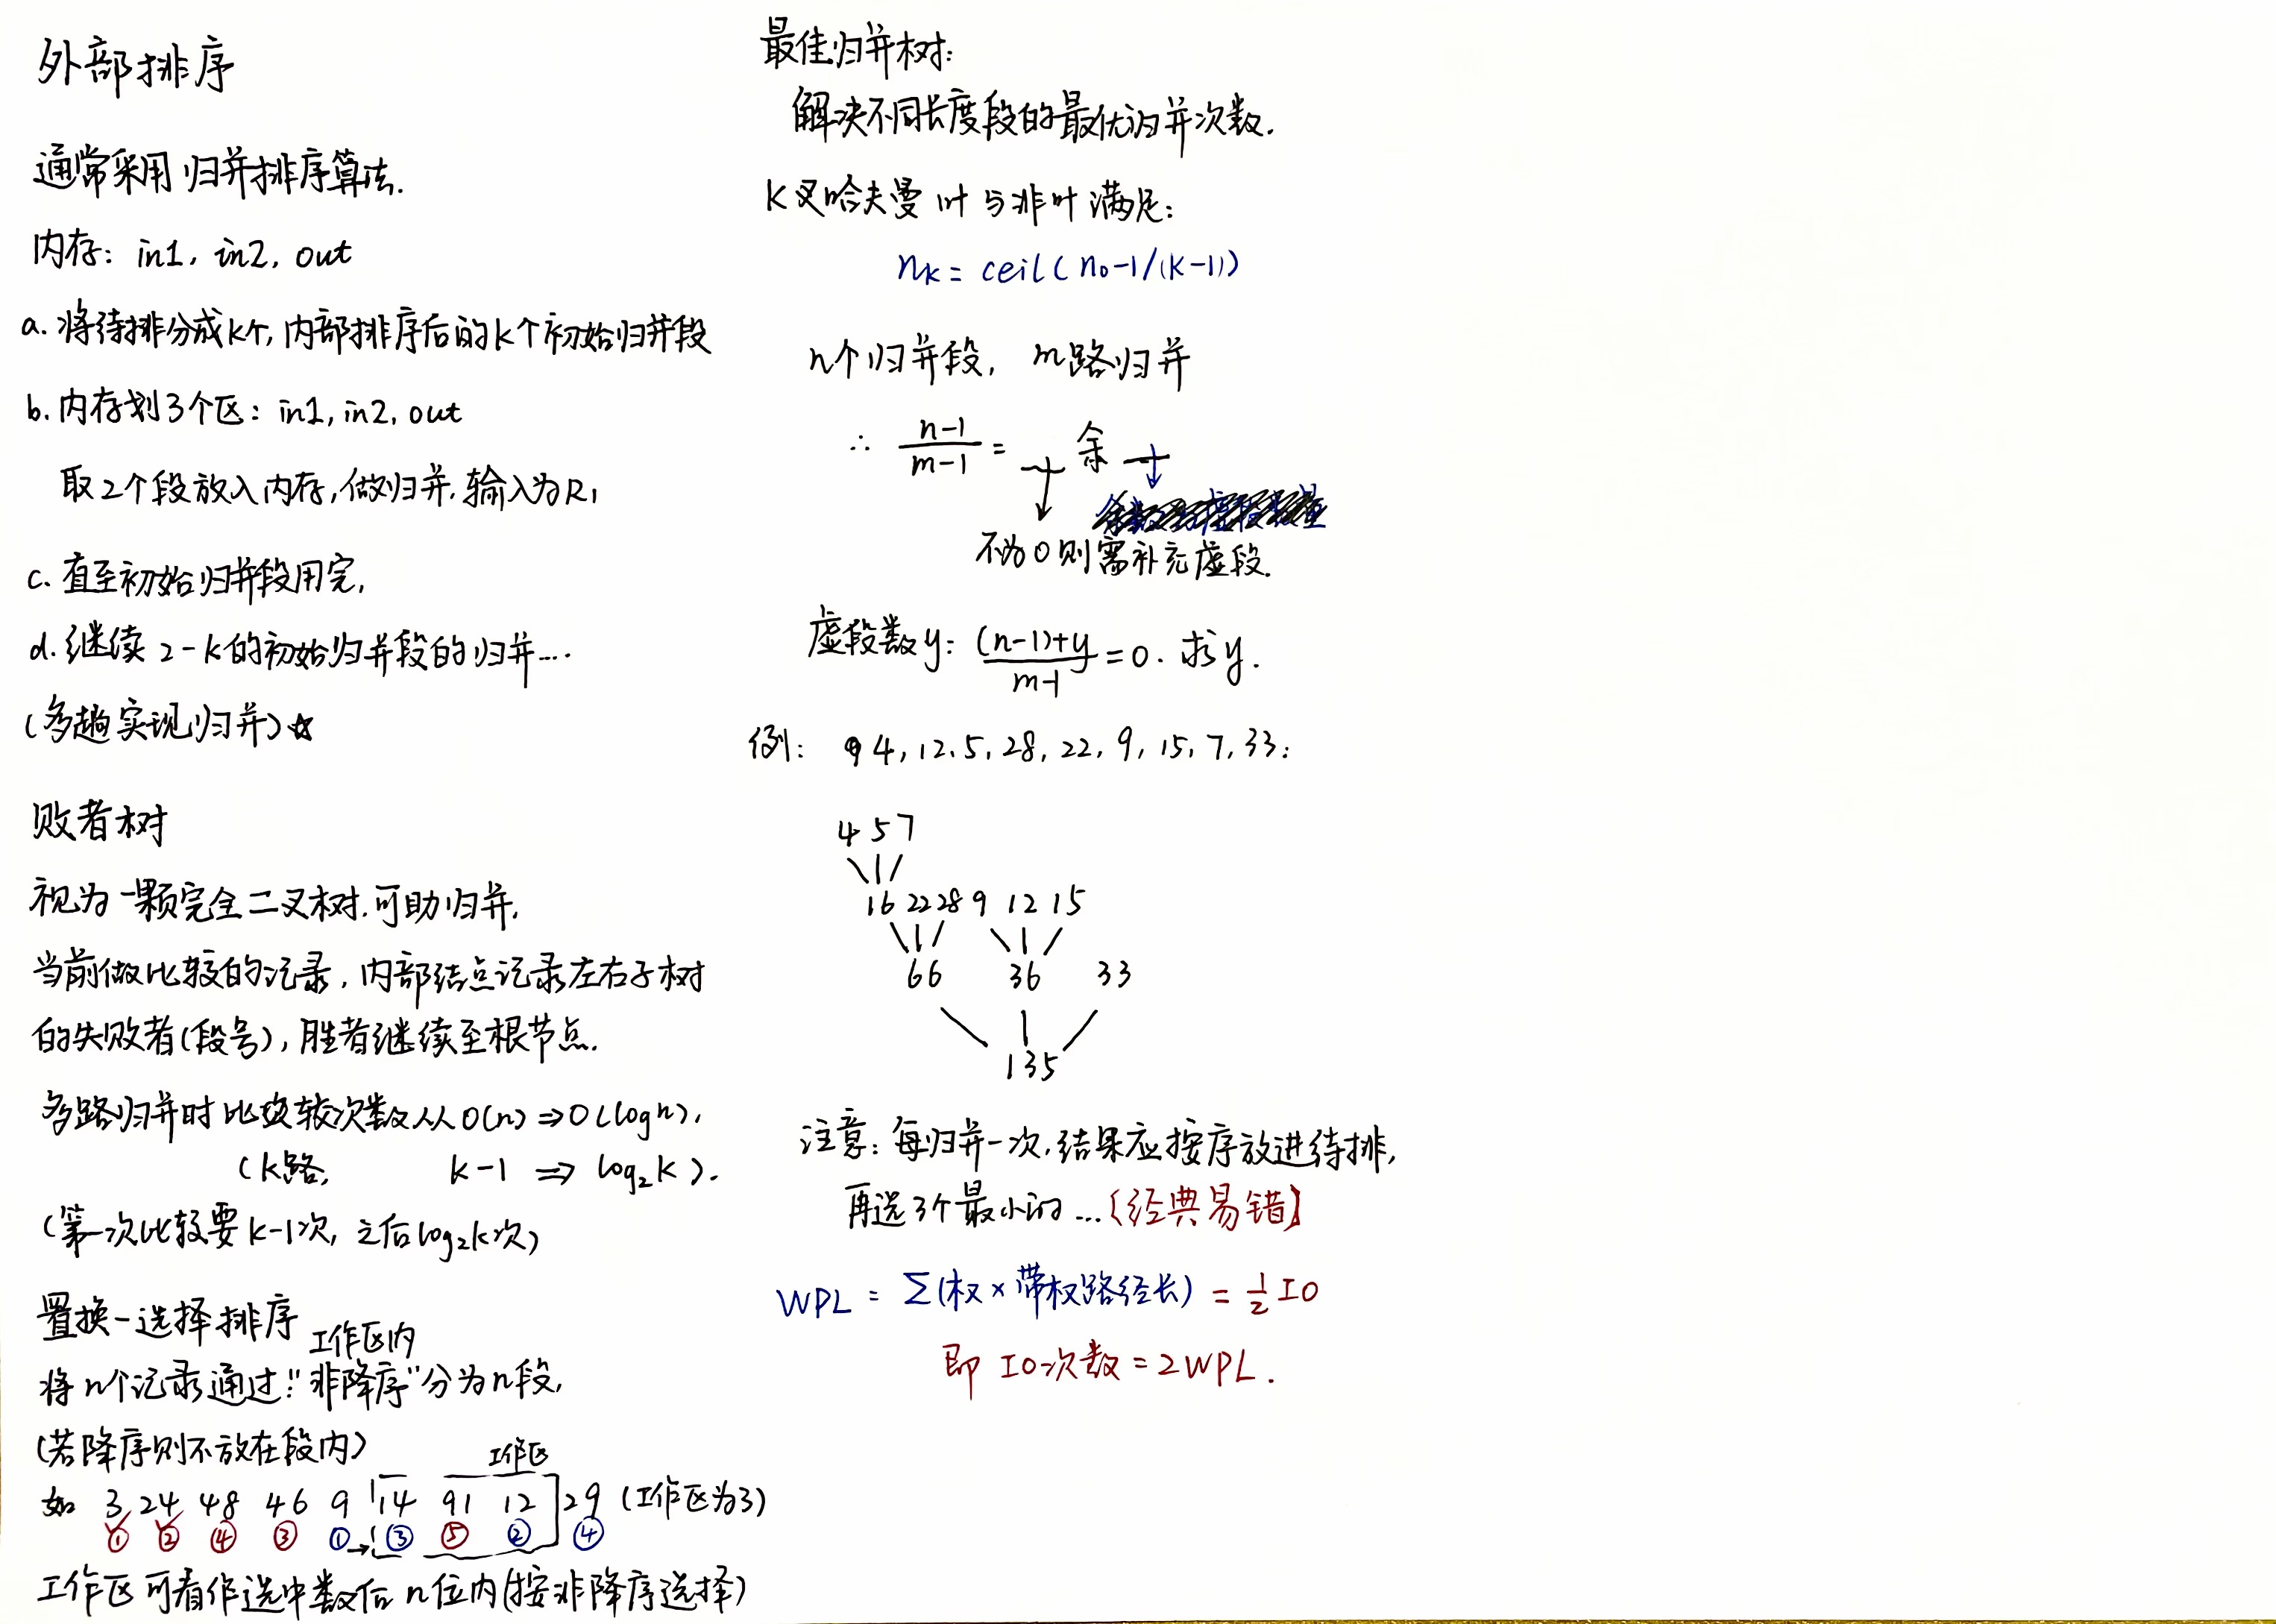 外部排序
通常采用归并排序算法.
内存: in1, in2, out
a. 将待排分成k个, 内部排序后的k个初始归并段
b. 内存划3个区: in1, in2, out
取2个段放入内存, 做归并, 输入为R1
c. 直至初始归并段用完,
d. 继续 2-k的初始归并段的归并....
(多趟实现归并)☆
败者树
视为一颗完全二叉树. 可助归并,
当前做比较的记录, 内部结点记录左右子树
的失败者(段号), 胜者继续至根节点.
多路归并时比较次数从O(n) ⇒ O(logn),
(k路, k-1 ⇒ log₂k).
(第一次比较要k-1次, 之后log₂k次)
置换-选择排序
工作区内
将n个记录通过"非降序"分为n段,
(若降序则不放在段内)
工作区
如 3 24 48 46 9 14 91 12 29 (工作区为3)
① ② ④ ③ ① → ③ ⑤ ② ④
工作区可看作选中数后n位内(按非降序选择)
最佳归并树:
解决不同长度段的最优归并次数.
K叉哈夫曼 叶与非叶满足:
nk = ceil( n₀-1/(k-1))
n个归并段, m路归并
∴ n-1/m-1 = 余
不为0则需补充虚段.
虚段数y: (n-1)+y/m-1 = 0. 求y.
例: 4, 12, 5, 28, 22, 9, 15, 7, 33:
4 5 7
16 22 28 9 12 15
66 36 33
135
注意: 每归并一次, 结果应按序放进待排,
再选3个最小的 ... 【经典易错】
WPL = Σ(权×带权路径长) = ½IO
即 IO次数 = 2WPL.